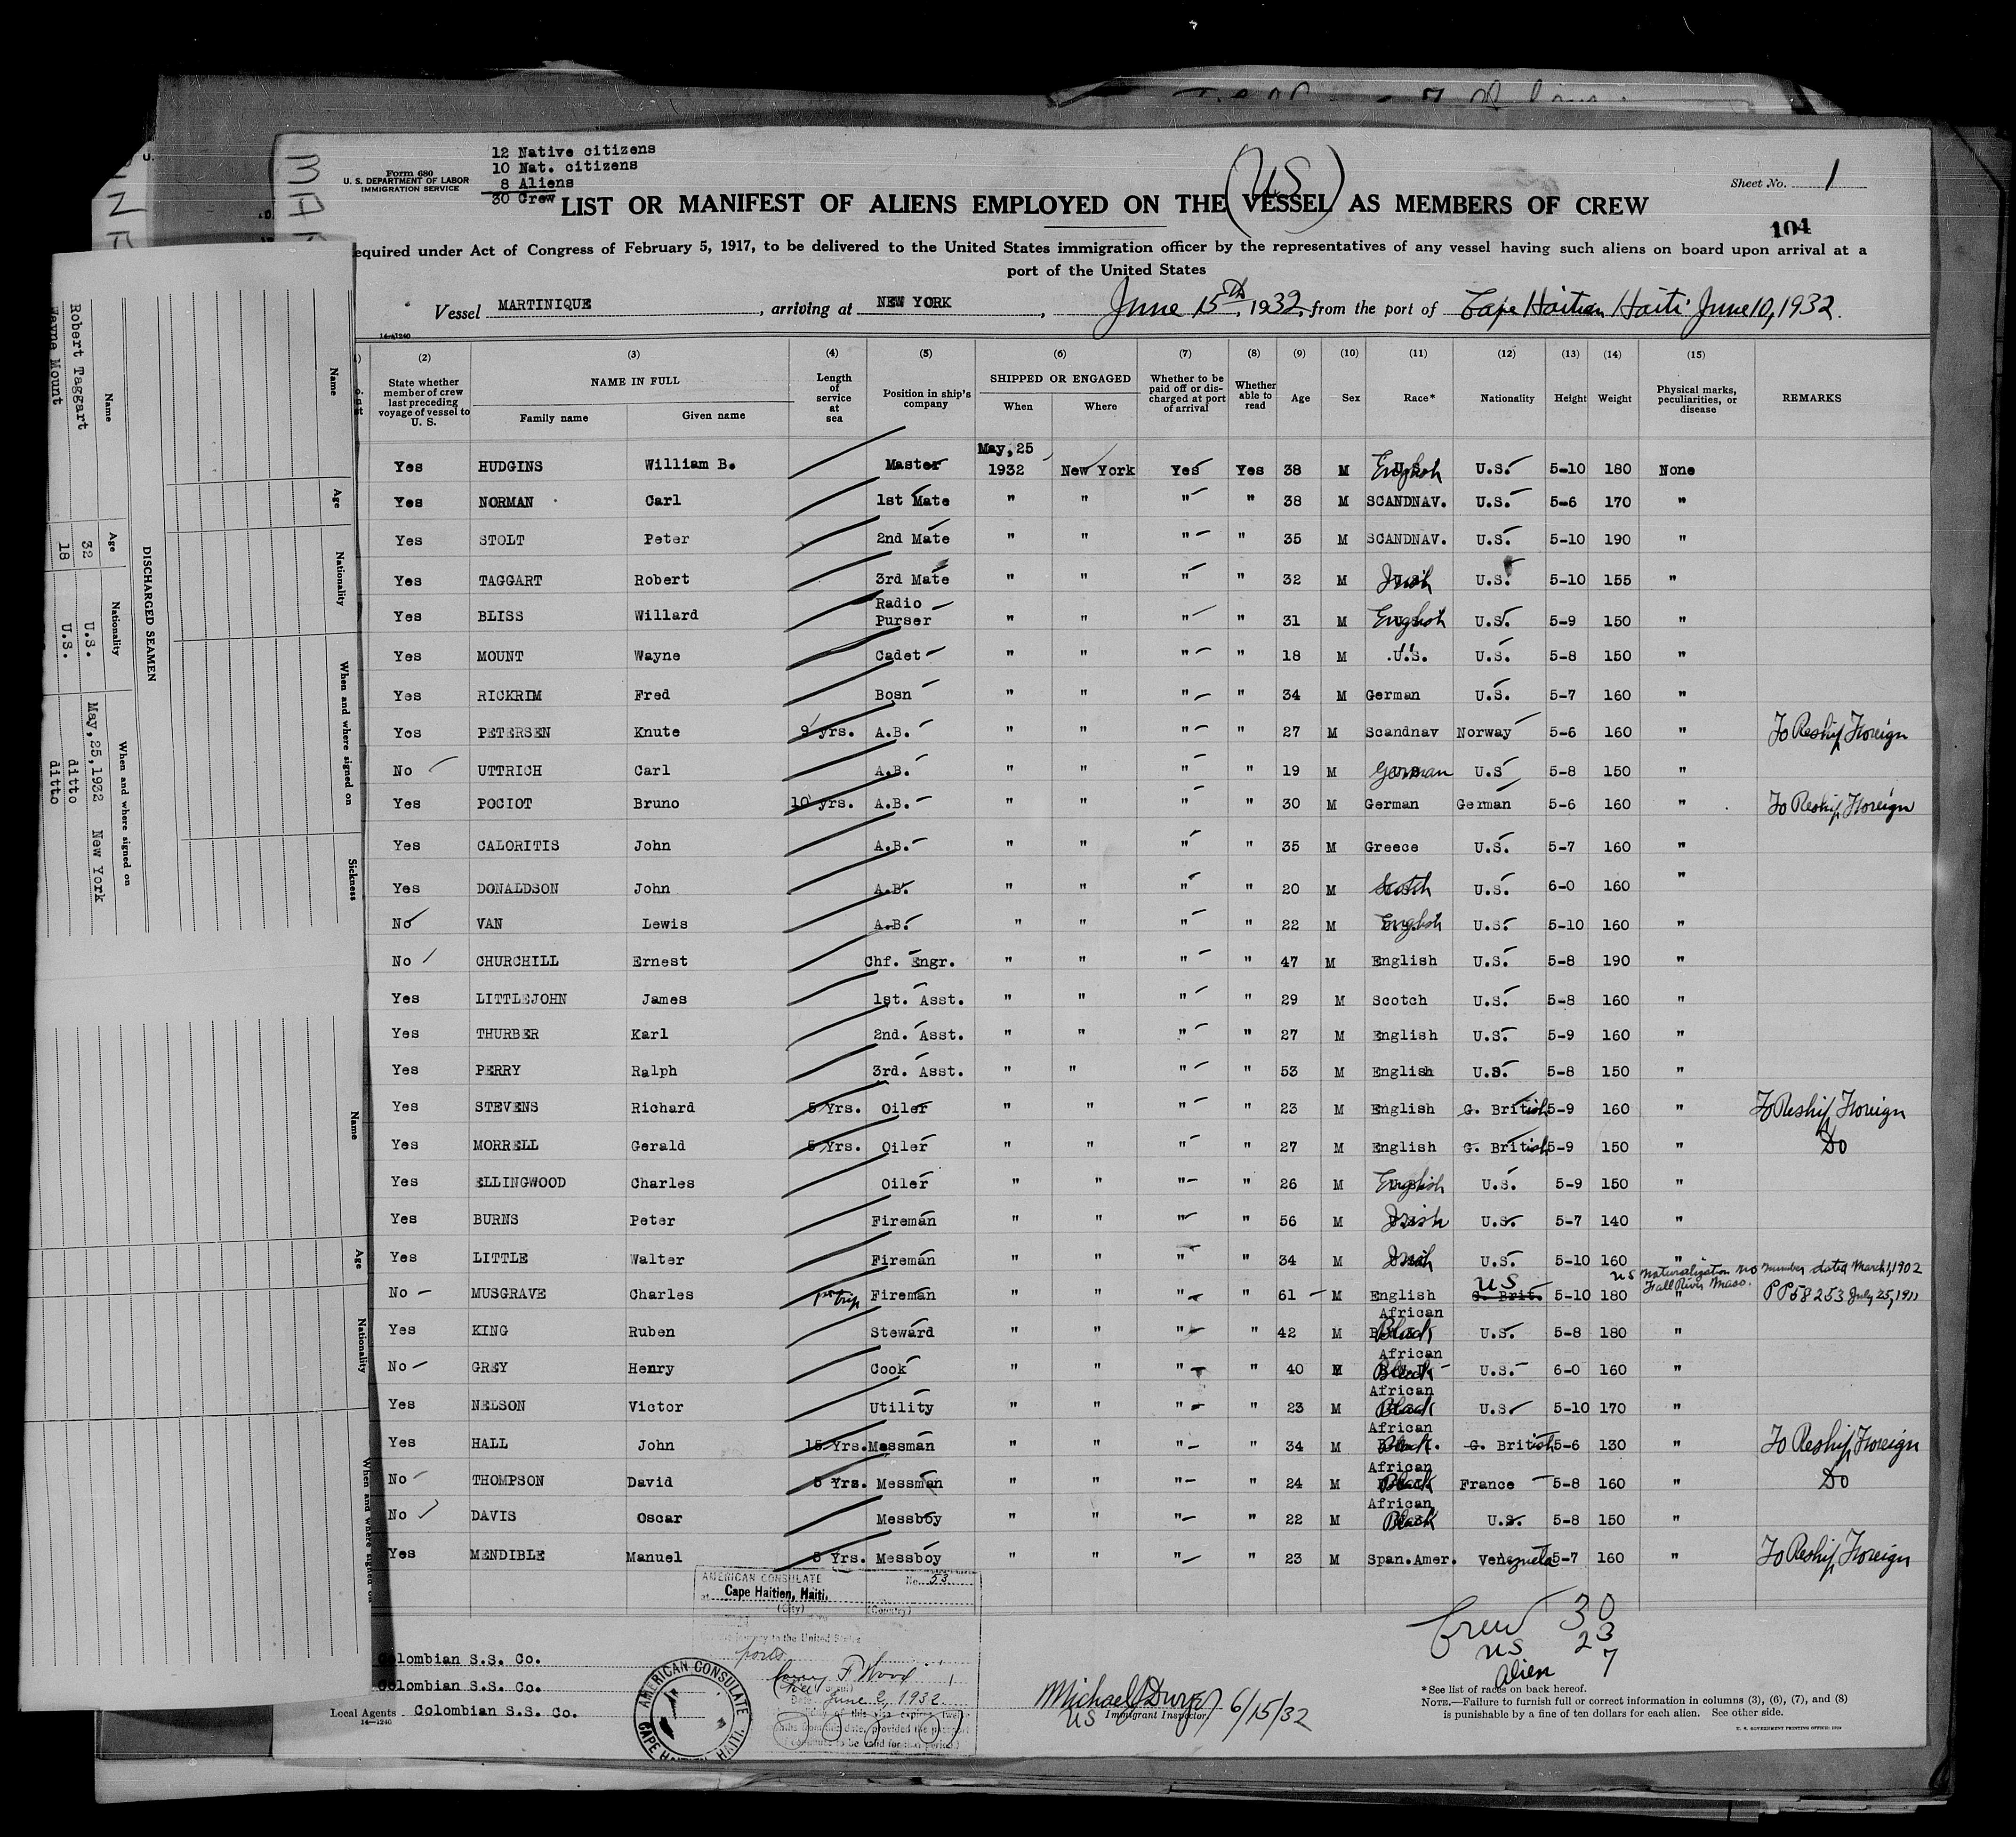 12 Native citizens
10 Nat. citizens
8 Aliens
30 Crew
Form 680
U. S. DEPARTMENT OF LABOR
IMMIGRATION SERVICE
Sheet No. 1
(US)
LIST OR MANIFEST OF ALIENS EMPLOYED ON THE VESSEL AS MEMBERS OF CREW
104
equired under Act of Congress of February 5, 1917, to be delivered to the United States immigration officer by the representatives of any vessel having such aliens on board upon arrival at a
port of the United States
Vessel MARTINIQUE, arriving at NEW YORK, June 15th, 1932, from the port of Cape Haitien Haiti June 10, 1932.
14-1240
(2) (3) (4) (5) (6) (7) (8) (9) (10) (11) (12) (13) (14) (15)
State whether member of crew last preceding voyage of vessel to U. S.
NAME IN FULL
Family name Given name
Length of service at sea
Position in ship's company
SHIPPED OR ENGAGED
When Where
Whether to be paid off or discharged at port of arrival
Whether able to read
Age Sex Race* Nationality Height Weight
Physical marks, peculiarities, or disease
REMARKS
May, 25
Yes HUDGINS William B. Master 1932 New York Yes Yes 38 M English U.S. 5-10 180 None
Yes NORMAN Carl 1st Mate " " " " 38 M SCANDNAV. U.S. 5-6 170 "
Yes STOLT Peter 2nd Mate " " " " 35 M SCANDNAV. U.S. 5-10 190 "
Yes TAGGART Robert 3rd Mate " " " " 32 M Irish U.S. 5-10 155 "
Yes BLISS Willard Radio Purser " " " " 31 M English U.S. 5-9 150 "
Yes MOUNT Wayne Cadet " " " " 18 M U.S. U.S. 5-8 150 "
Yes RICKRIM Fred Bosn " " " " 34 M German U.S. 5-7 160 "
Yes PETERSEN Knute 9 yrs. A.B. " " " " 27 M Scandnav Norway 5-6 160 " To Reship Foreign
No UTTRICH Carl A.B. " " " " 19 M German U.S 5-8 150 "
Yes POCIOT Bruno 10 yrs. A.B. " " " " 30 M German German 5-6 160 " To Reship Foreign
Yes CALORITIS John A.B. " " " " 35 M Greece U.S. 5-7 160 "
Yes DONALDSON John A.B. " " " " 20 M Scotch U.S. 6-0 160 "
No VAN Lewis A.B. " " " " 22 M English U.S. 5-10 160 "
No CHURCHILL Ernest Chf. Engr. " " " " 47 M English U.S. 5-8 190 "
Yes LITTLEJOHN James 1st. Asst. " " " " 29 M Scotch U.S. 5-8 160 "
Yes THURBER Karl 2nd. Asst. " " " " 27 M English U.S. 5-9 160 "
Yes PERRY Ralph 3rd. Asst. " " " " 53 M English U.S. 5-8 150 "
Yes STEVENS Richard 5 Yrs. Oiler " " " " 23 M English G. British 5-9 160 " To Reship Foreign
Yes MORRELL Gerald 5 Yrs. Oiler " " " " 27 M English G. British 5-9 150 " Do
Yes ELLINGWOOD Charles Oiler " " " " 26 M English U.S. 5-9 150 "
Yes BURNS Peter Fireman " " " " 56 M Irish U.S. 5-7 140 "
Yes LITTLE Walter Fireman " " " " 34 M Irish U.S. 5-10 160 "
US Naturalization No number dated March 1, 1902
Fall River Mass.
No MUSGRAVE Charles 1st trip Fireman " " " " 61 M English US G. Brit. 5-10 180 " PP 58253 July 25, 1911
Yes KING Ruben Steward " " " " 42 M African Black U.S. 5-8 180 "
No GREY Henry Cook " " " " 40 M African Black U.S. 6-0 160 "
Yes NELSON Victor Utility " " " " 23 M African Black U.S. 5-10 170 "
Yes HALL John 15 Yrs. Messman " " " " 34 M African Black. G. British 5-6 130 " To Reship Foreign
No THOMPSON David 5 Yrs. Messman " " " " 24 M African Black France 5-8 160 " Do
No DAVIS Oscar Messboy " " " " 22 M African Black U.S. 5-8 150 "
Yes MENDIBLE Manuel 5 Yrs. Messboy " " " " 23 M Span.Amer. Venezuela 5-7 160 " To Reship Foreign
AMERICAN CONSULATE No. 53
Cape Haitien, Haiti.
(City) (Country)
journey to the United States
F Wood
June 2, 1932
AMERICAN CONSULATE
CAPE HAITIEN, HAITI.
Crew 30
US 23
Alien 7
Colombian S.S. Co.
Colombian S.S. Co.
Local Agents Colombian S.S. Co.
14-1240
Michael J. 6/15/32
US Immigrant Inspector
*See list of races on back hereof.
NOTE.—Failure to furnish full or correct information in columns (3), (6), (7), and (8)
is punishable by a fine of ten dollars for each alien. See other side.
U. S. GOVERNMENT PRINTING OFFICE: 1929
DISCHARGED SEAMEN
Name Age Nationality When and where signed on
Robert Taggart 32 U.S. May, 25, 1932 New York
Wayne Mount 18 U.S. ditto ditto
Name Age Nationality When and where signed on Sickness
Name Age Nationality When and where signed on